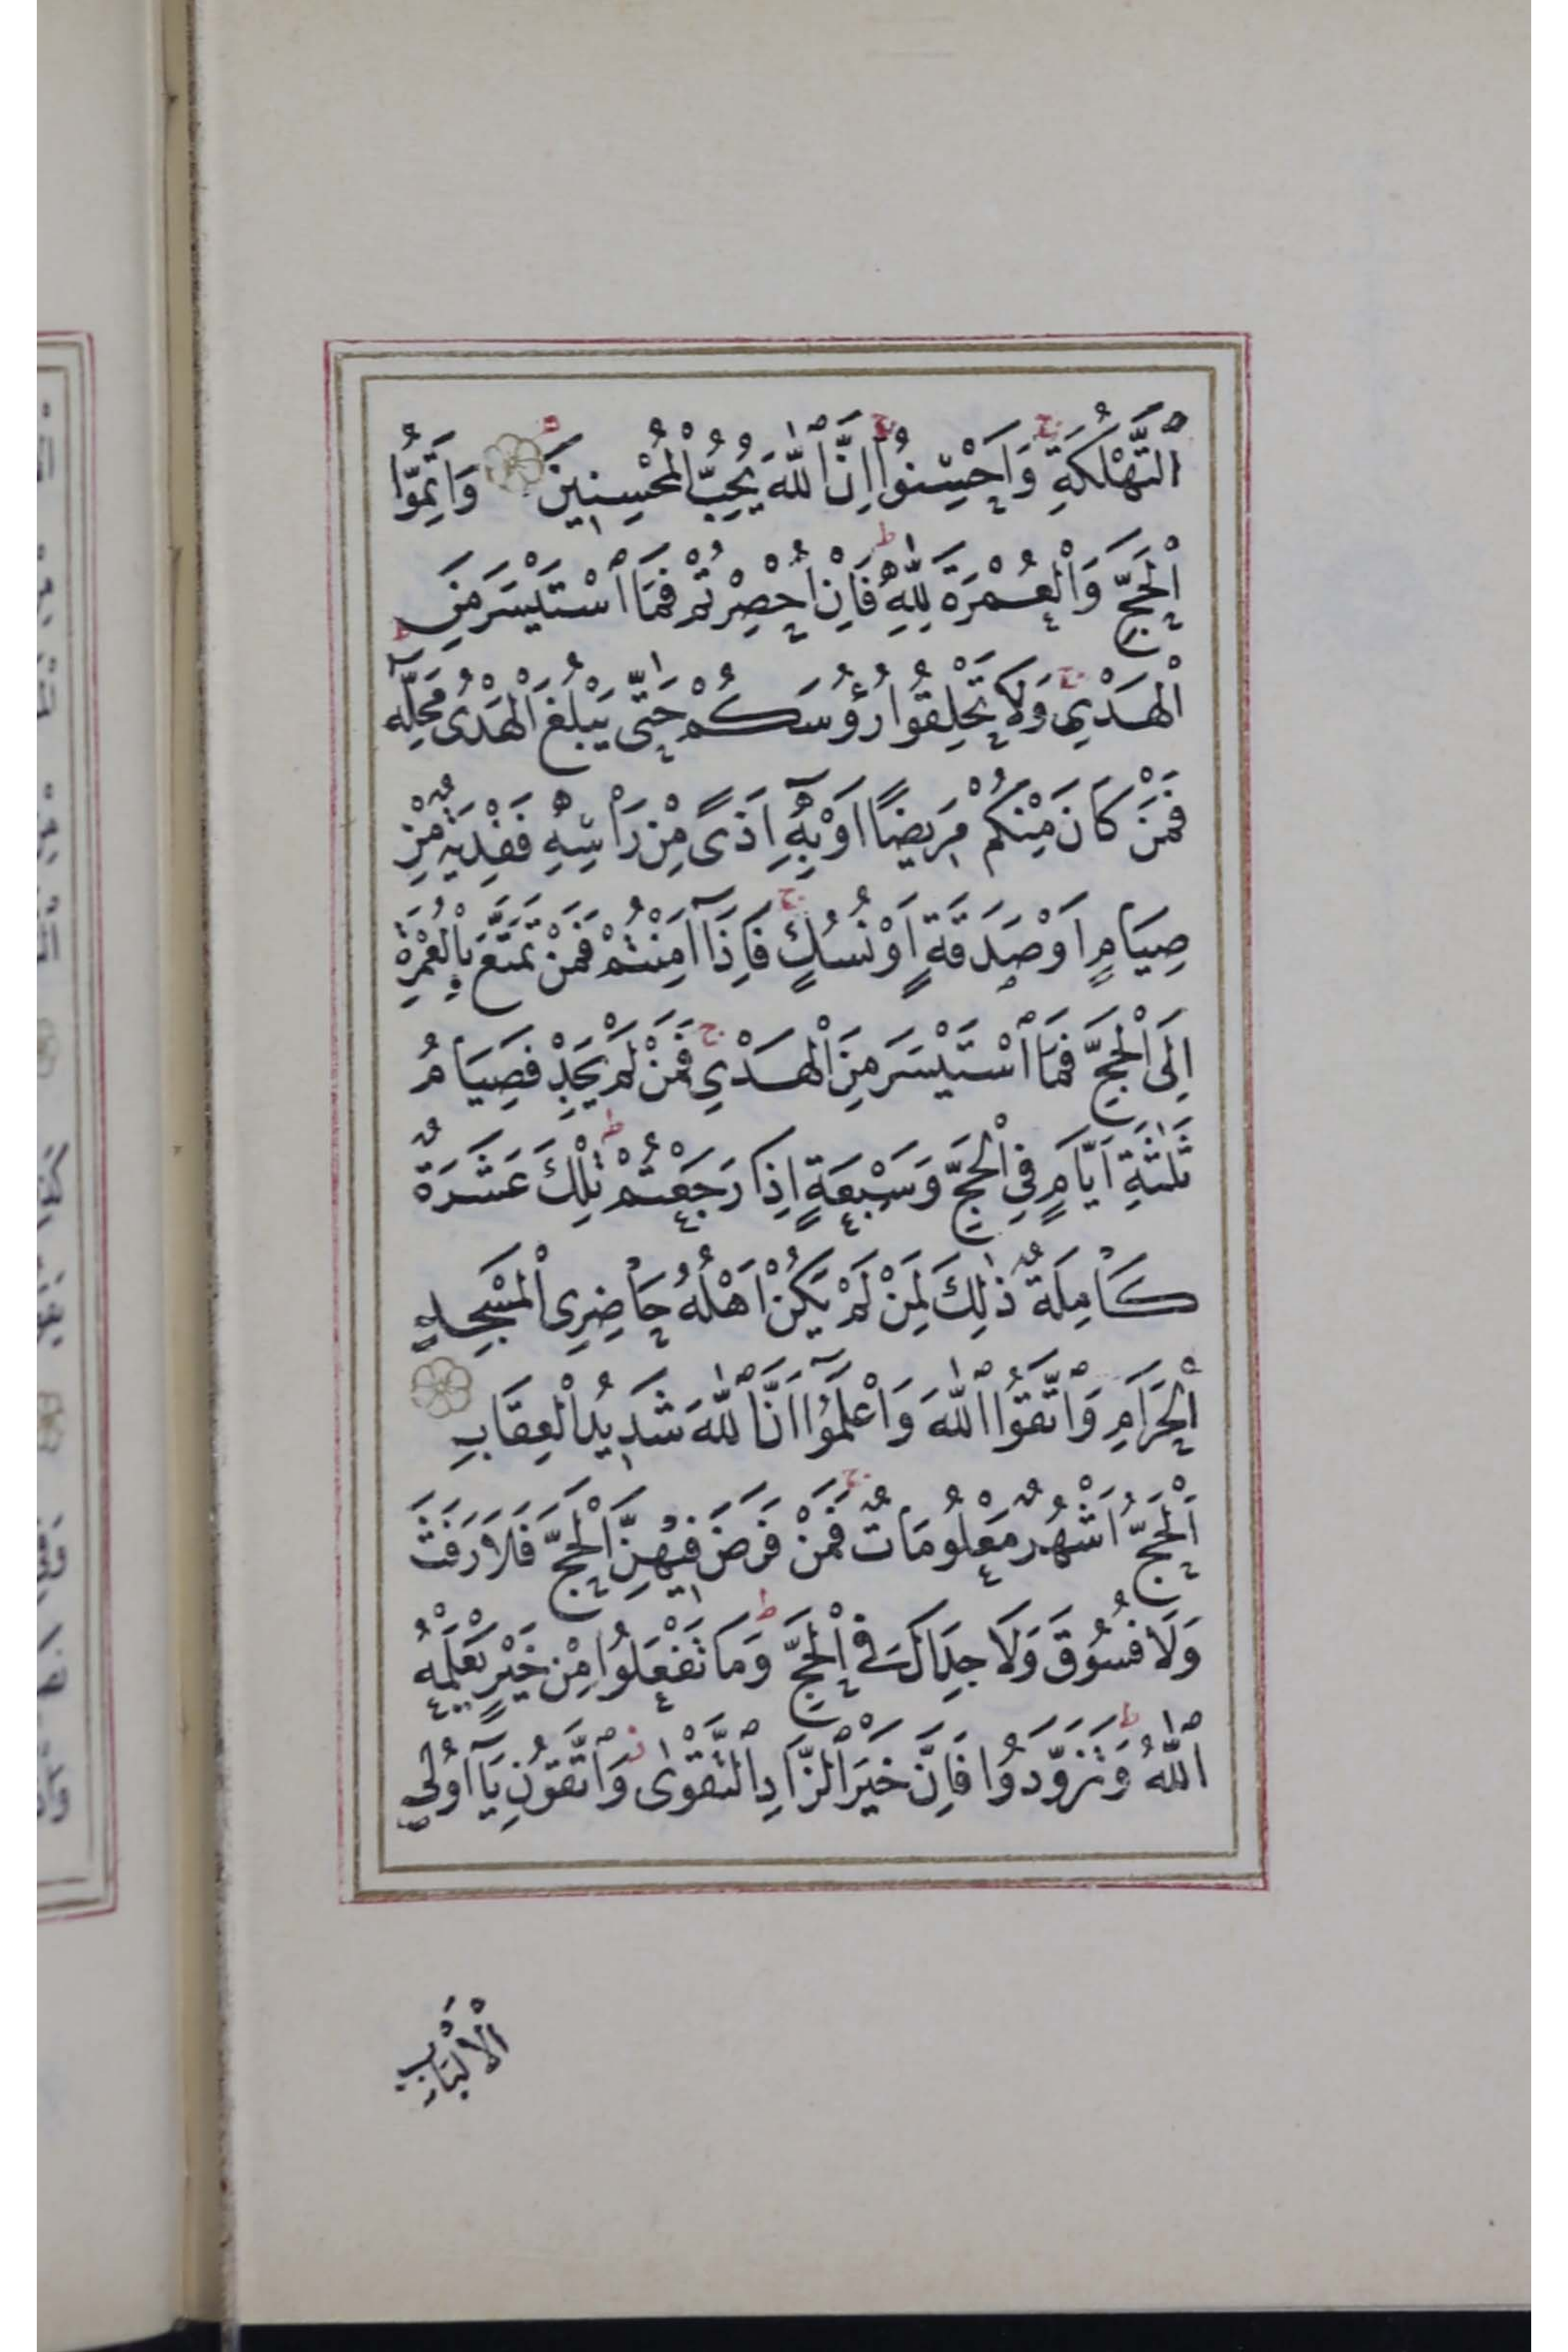 ٱلتَّهْلُكَةِ وَاَحْسِنُوا اِنَّ ٱللّٰهَ يُحِبُّ الْمُحْسِنِينَ وَاَتِمُّوا
الْحَجَّ وَالْعُمْرَةَ لِلّٰهِ فَاِنْ اُحْصِرْتُمْ فَمَا ٱسْتَيْسَرَ مِنَ
الْهَدْيِ وَلَا تَحْلِقُوا رُؤُسَكُمْ حَتّٰى يَبْلُغَ الْهَدْىُ مَحِلَّهُ
فَمَنْ كَانَ مِنْكُمْ مَرِيضًا اَوْ بِهِٓ اَذًى مِنْ رَاْسِهِ فَفِدْيَةٌ مِنْ
صِيَامٍ اَوْ صَدَقَةٍ اَوْ نُسُكٍ فَاِذَٓا اَمِنْتُمْ فَمَنْ تَمَتَّعَ بِالْعُمْرَةِ
اِلَى الْحَجِّ فَمَا ٱسْتَيْسَرَ مِنَ الْهَدْيِ فَمَنْ لَمْ يَجِدْ فَصِيَامُ
ثَلٰثَةِ اَيَّامٍ فِي الْحَجِّ وَسَبْعَةٍ اِذَا رَجَعْتُمْ تِلْكَ عَشَرَةٌ
كَامِلَةٌ ذٰلِكَ لِمَنْ لَمْ يَكُنْ اَهْلُهُ حَاضِرِى الْمَسْجِدِ
الْحَرَامِ وَٱتَّقُوا ٱللّٰهَ وَاعْلَمُٓوا اَنَّ ٱللّٰهَ شَدِيدُ الْعِقَابِ
اَلْحَجُّ اَشْهُرٌ مَعْلُومَاتٌ فَمَنْ فَرَضَ فِيهِنَّ الْحَجَّ فَلَا رَفَثَ
وَلَا فُسُوقَ وَلَا جِدَالَ فِي الْحَجِّ وَمَا تَفْعَلُوا مِنْ خَيْرٍ يَعْلَمْهُ
ٱللّٰهُ وَتَزَوَّدُوا فَاِنَّ خَيْرَ ٱلزَّادِ ٱلتَّقْوٰى وَٱتَّقُونِ يَٓا اُولِي
الْاَلْبَابِ